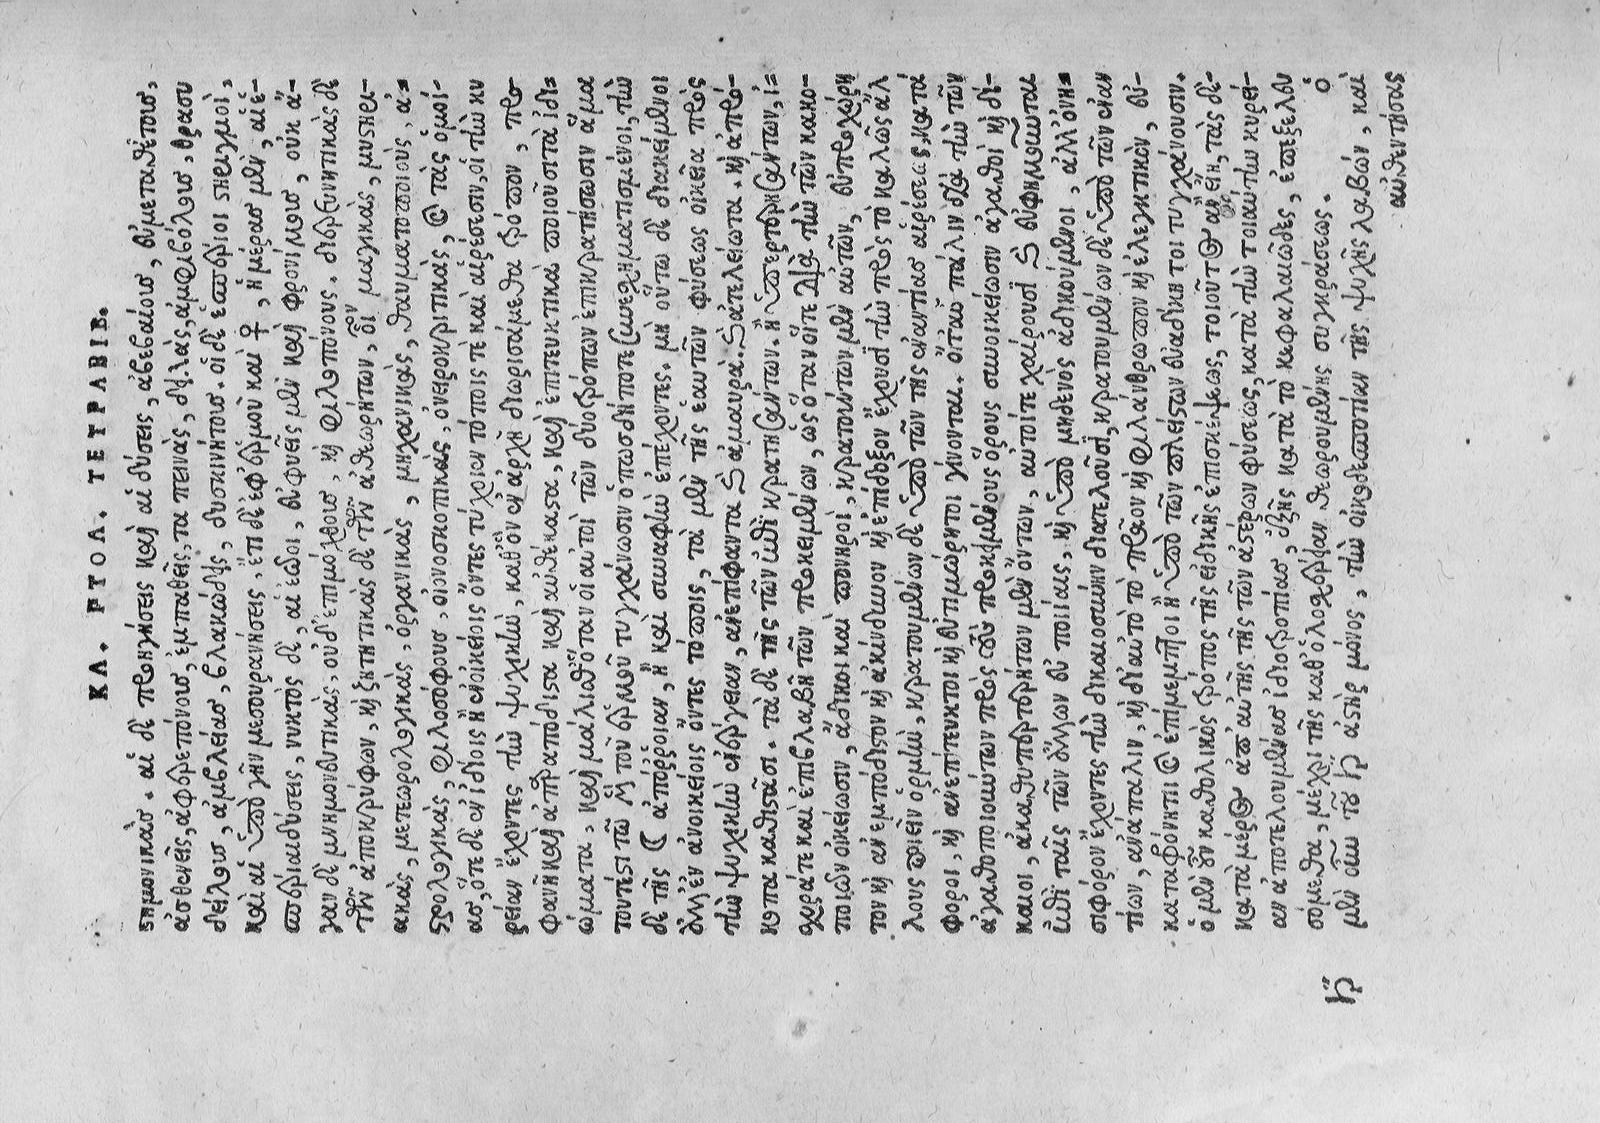 ΚΛ. ΠΤΟΛ. ΤΕΤΡΑΒΙΒ.
στημονικάσ. αἱ δὲ προηγήσεις καὶ αἱ δύσεις, ἀβεβαίουσ, εὐμεταθέτουσ,
ἀσθενεῖς, ἀφερεπόνουσ, ἐμπαθεῖς, ταπεινὰς, δειλὰς, ἀμφιβόλουσ, θρασυ
δείλουσ, ἀμβλείασ, βλακώδεις, δυσκινήτουσ. οἱ δὲ ἑσπέριοι στηριγμοὶ,
καὶ αἱ ὑπὸ γῆν μεσουρανήσεις, ἔτι δὲ ἐφ' ἑρμοῦ καὶ ♀, ἡμέρασ μὲν, αἱ ἑ-
σπέριαι δύσεις, νυκτὸς δὲ, αἱ ἑῷοι, εὐφυεῖς μὲν καὶ φρονίμουσ, οὐκ ἄ-
γαν δὲ μνημονευτικὰς, οὐδ' ἐπιμόχθουσ, καὶ φιλοπόνους. διερευνητικὰς δὲ
τῶν ἀποκρύφων, καὶ ζητητικὰς δὲ τῶν ἀθεωρήτων, οἷον μαγικὰς, μυστηρι-
ακὰς, μετεωρολογικὰς, ὀργανικὰς, μηχανικὰς, θαυματοποιοὺσ, ἀ=
στρολογικὰς, φιλοσόφουσ, οἰωνοσκοπικὰς, ὀνειροκριτικὰς, καὶ τὰς ὁμοί-
ασ, ὅτε δὲ ἐν ἰδίοις ἢ ἐν οἰκείοις ὄντες τύχοιεν τόποις τὲ καὶ αἱρέσεσιν, οἱ τὴν κυ
ρείαν ἔχοντες τὴν ψυχικὴν, καθ' ὃν ἐν ἀρχῇ διωρισάμεθα τρόπον, προ
φανῆ καὶ ἀπαραπόδιστα καὶ αὐθέκαστα, καὶ ἐπιτευκτικὰ ποιοῦσι τὰ ἰδι=
ώματα. καὶ μάλισθ' ὅταν οἱ αὐτοὶ τῶν δύο τρόπων ἐπικρατήσωσιν ἅμα
τουτέστι τῷ μὲν τοῦ ἑρμοῦ τυγχάνωσιν ὁπωσδήποτε συνεσχηματισμένοι, τὴν
δὲ τῆς ☽ ἀπόρροιαν, ἢ καὶ συναφὴν ἐπέχοντες. μὴ οὕτω δὲ διακείμενοι
ἀλλ' ἐν ἀνοικείοις ὄντες τόποις, τὰ μὲν τῆς ἑαυτῶν φύσεως οἰκεῖα πρὸς
τὴν ψυχικὴν ἐνέργειαν, ἀνεπίφαντα καὶ ἀμαυρὰ. καὶ ἀτελείωτα. καὶ ἀπρό-
κοπα καθιστᾶσι. τὰ δὲ τῆς τῶν ἐπὶ κρατησάντων. ἢ ὑπερτορησάντων, ἰ=
σχυρά τε καὶ ἐπιβλαβῆ τῶν προκειμένων, ὡς ὅταν οἵτε διὰ τὴν τῶν κακο-
ποιῶν οἰκείωσιν, ἄδικοι καὶ πονηροὶ, κρατούντων μὲν αὐτῶν, εὐπροχώρη
τον καὶ ἀνεμπόδιστον καὶ ἀκίνδυνον καὶ ἐπίδοξον ἔχουσι τὴν πρὸς τὸ κακῶς ἀλ
λους ποιεῖν ὁρμὴν, κρατουμένων δὲ ὑπὸ τῶν τῆς ἐναντίασ αἱρέσεως κατά
φοροι, καὶ ἀνεπίτευκτοι καὶ εὐτιμώρητοι γίνονται. οἵ τ' αὖ πάλιν διὰ τὴν τῶν
ἀγαθοποιούντων πρὸς τοὺς προκειμένους ὅρους συνοικείωσιν ἀγαθοὶ καὶ δί-
καιοι, ἀκαθυπερτερήτων μὲν ὄντων, αὐτοίτε χαίρουσι καὶ εὐφημοῦνται
ἐπὶ ταῖς τῶν ἄλλων εὐποιίαις, καὶ ὑπὸ μηδενὸς ἀδικούμενοι, ἀλλ' ὀνη=
σιφόρον ἔχοντες τὴν δικαιοσύνην διατελοῦσι, κρατουμένων δὲ ὑπὸ τῶν ἐναν
τίων, ἀνάπαλιν, καὶ δι' αὐτὸ τὸ πρᾶον καὶ φιλάνθρωπον καὶ ἐλεητικὸν, εὐ-
καταφρόνητοι καὶ ἐπίμεμπτοι ἢ ὑπὸ τῶν πλείστων εὐαδίκητοι τυγχάνουσιν.
ὁ μὲν οὖν καθολικὸς τρόπος τῆς εἰδικῆς ἐπισκέψεως, τοιοῦτος ἂν εἴη, τὰς δὲ-
κατὰ μέρος ἀπ' αὐτῆς τῆς τῶν ἀστέρων φύσεως, κατὰ τὴν τοιαύτην κυρεί-
αν ἀποτελουμένασ ἰδιοτροπίασ, ἑξῆς κατὰ τὸ κεφαλαιῶδες, ἐπεξελευ
σόμεθα, μέχρι τῆς καθ' ὁλοσχέρειαν θεωρουμένης συγκράσεως. ὁ
μὲν οὖν τοῦ ♄ ἀστὴρ μόνος, τὴν οἰκοδεσποτίαν τῆς ψυχῆς λαβὼν, καὶ
αὐθεντήσας
♄